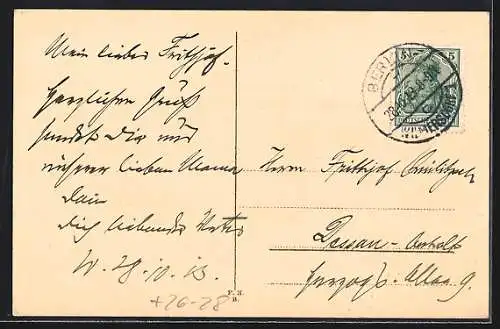 Mein lieber Frithjof.
Herzlichen Gruß
sendet Dir und
unserer lieben Mama
Dein
Dich liebender Vater
W. 28.10.13.
+26-28
P. H.
B.
BERLIN-
28.10.13
5
Herrn Frithjof
Dessau-Anhalt
Herzogs-Allee 9.